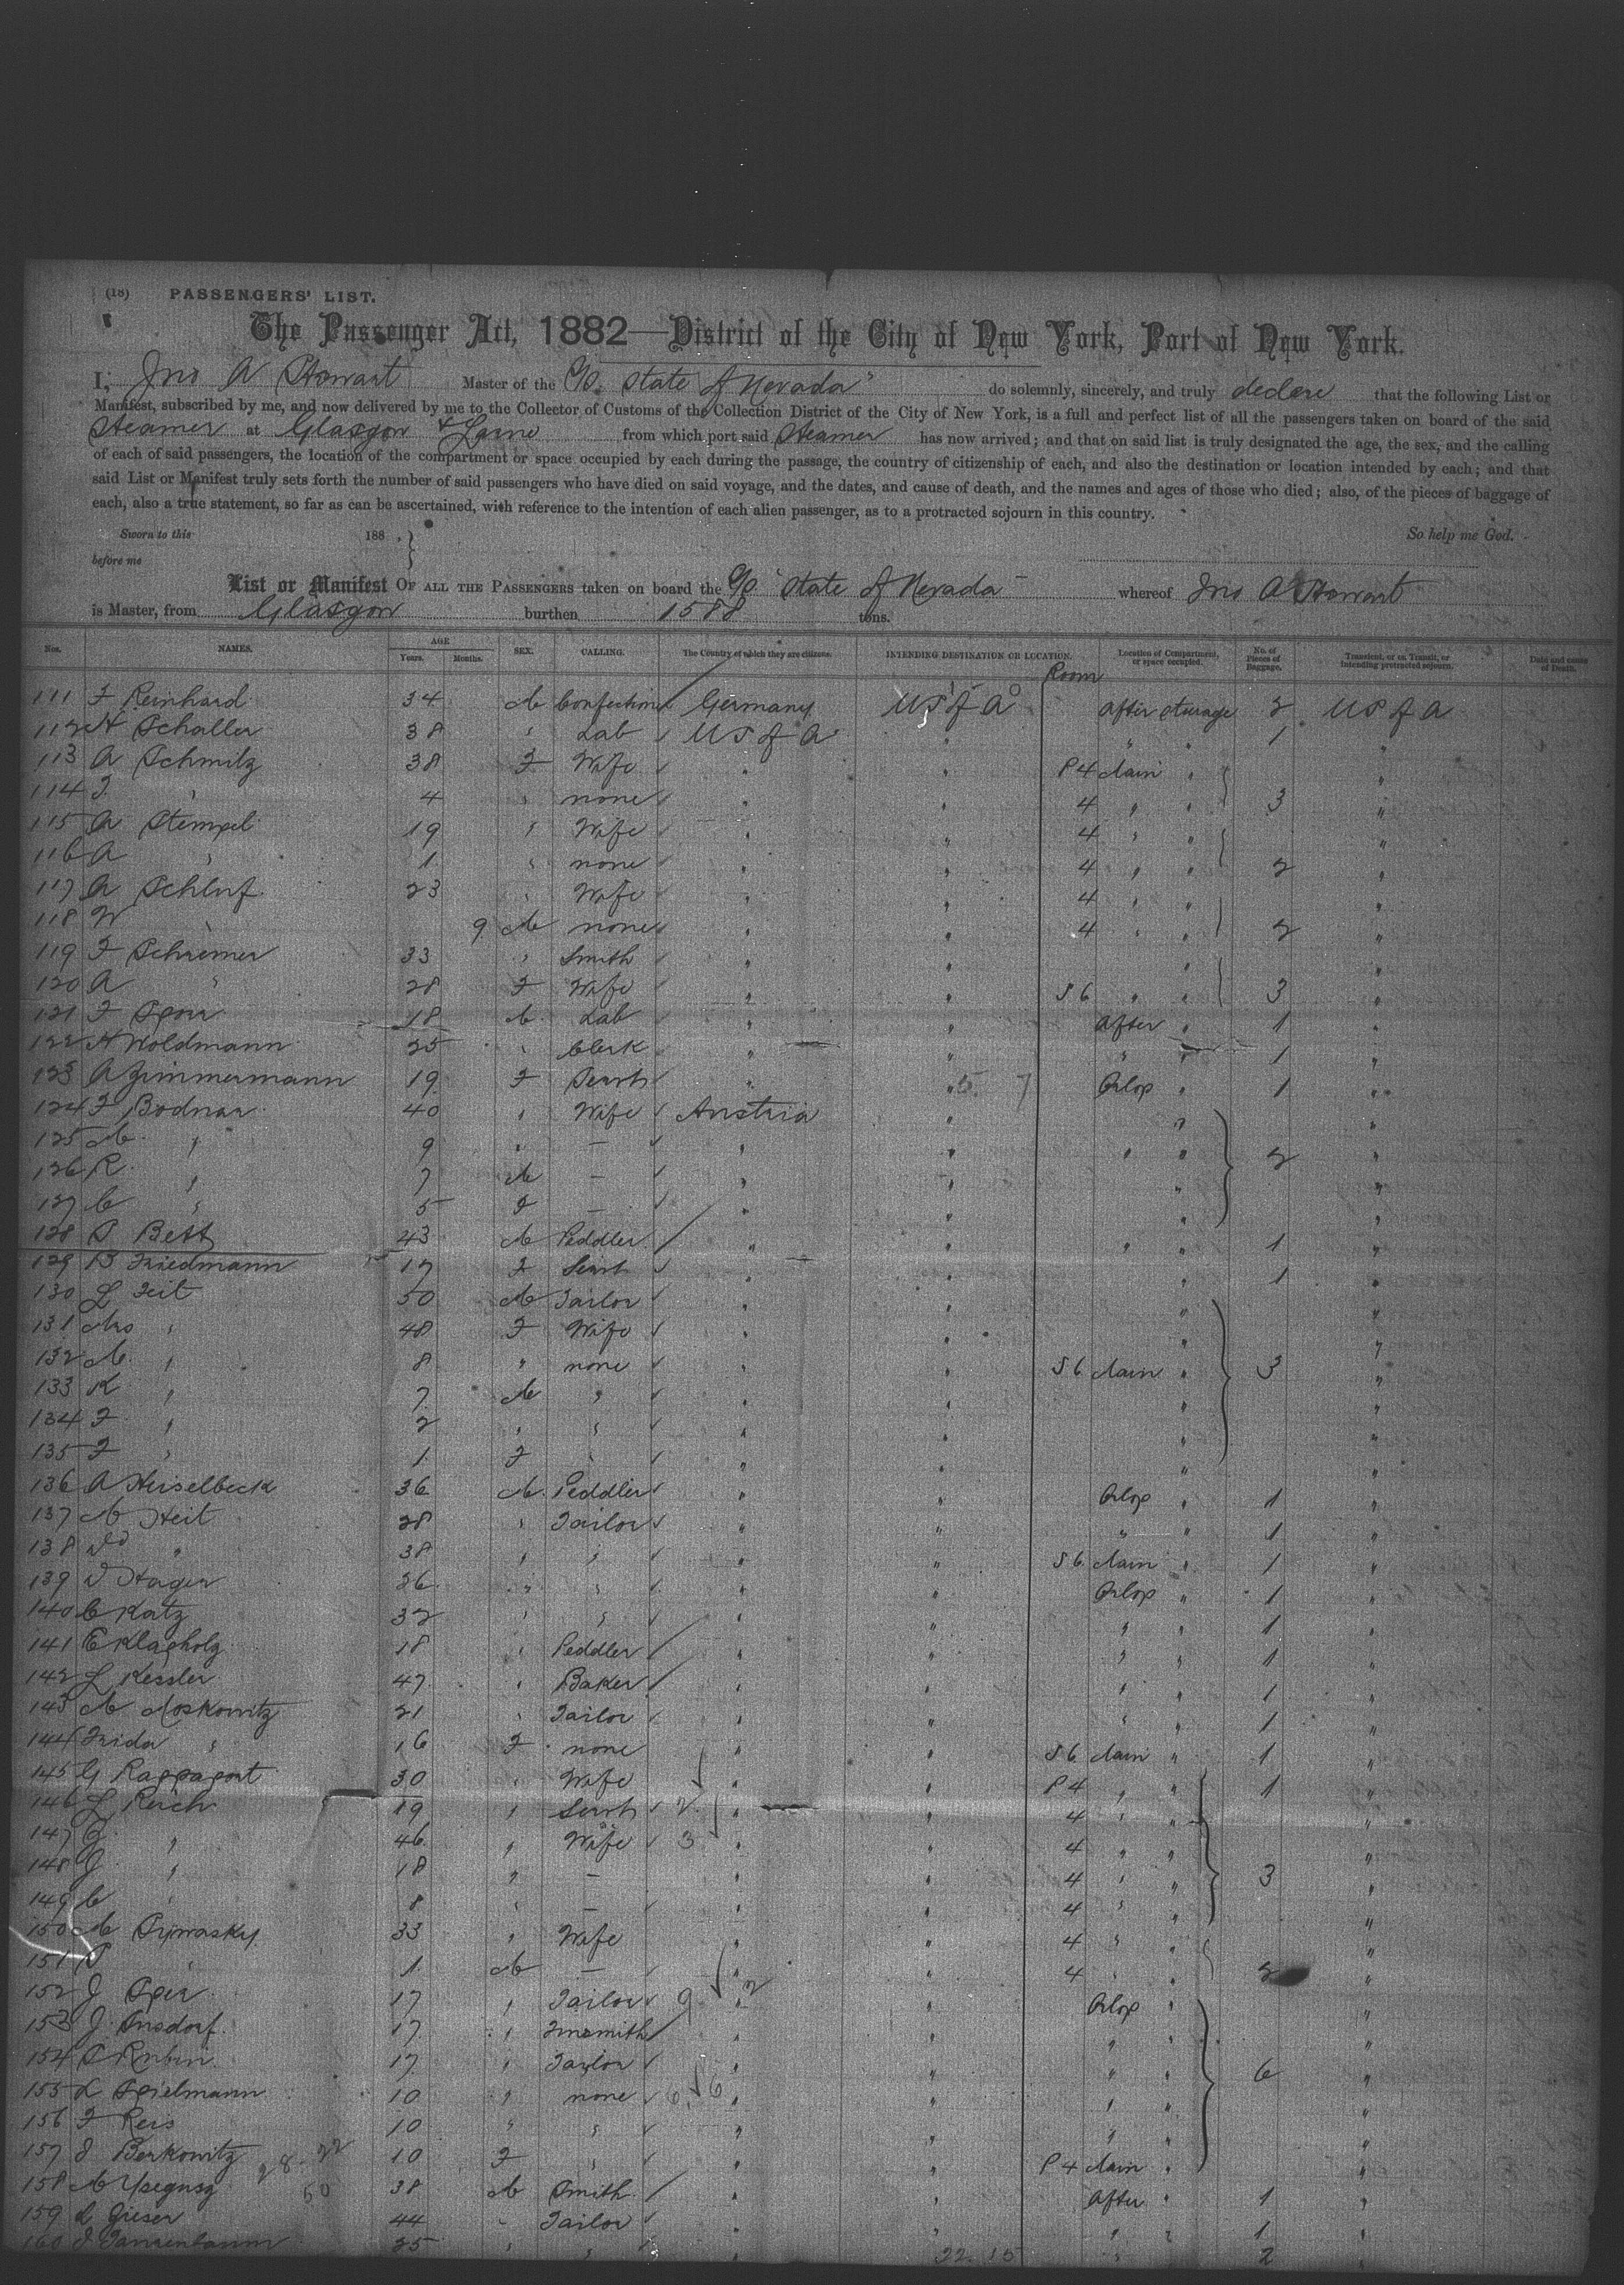 (18) PASSENGERS' LIST.
The Passenger Act, 1882—District of the City of New York, Port of New York.
I, Jno A Stewart Master of the S/S. State of Nevada do solemnly, sincerely, and truly declare that the following List or
Manifest, subscribed by me, and now delivered by me to the Collector of Customs of the Collection District of the City of New York, is a full and perfect list of all the passengers taken on board of the said
Steamer at Glasgow & Larne from which port said Steamer has now arrived; and that on said list is truly designated the age, the sex, and the calling
of each of said passengers, the location of the compartment or space occupied by each during the passage, the country of citizenship of each, and also the destination or location intended by each; and that
said List or Manifest truly sets forth the number of said passengers who have died on said voyage, and the dates, and cause of death, and the names and ages of those who died; also, of the pieces of baggage of
each, also a true statement, so far as can be ascertained, with reference to the intention of each alien passenger, as to a protracted sojourn in this country.
Sworn to this 188 . } So help me God.
before me
List or Manifest OF ALL THE PASSENGERS taken on board the S/S. State of Nevada whereof Jno A Stewart
is Master, from Glasgow burthen 1588 tons.
Nos. NAMES. AGE Years. Months. SEX. CALLING. The Country of which they are citizens. INTENDING DESTINATION OR LOCATION. Location of Compartment, or space occupied. No. of Pieces of Baggage. Transient, or in Transit, or intending protracted sojourn. Date and cause of Death.
Room
111 F Reinhard 34 M Confection Germany US of A After steerage 2 US of A
112 H Schaller 38 " Lab US of A " " " 1 "
113 A Schmitz 38 F Wife " " P4 Main " "
114 F. " 4 " none " " 4 " " 3 "
115 A Stempel 19 " Wife " " 4 " " "
116 A " 1 " none " " 4 " " 2 "
117 A Schluf 23 " Wife " " 4 " " "
118 W " 9 M none " " 4 " " 2 "
119 F Schremer 33 " Smith " " " "
120 A " 28 F Wife " " S6 " " 3 "
121 F Spour 18 M Lab " " After " 1 "
122 H Woldmann 25 " Clerk " " " " 1 "
123 A Zimmermann 19 F Servt " " Orlop " 1 "
124 F Bodnar 40 " Wife Austria " " "
125 M. " 9 " — " " " " 2 "
126 R. " 7 M — " " " "
127 C " 5 F — " " " "
128 S Bett 43 M Peddler " " " " 1 "
129 B Friedmann 17 F Servt " " " 1 "
130 L Feit 50 M Tailor " " " "
131 Mrs " 48 F Wife " " " "
132 M. " 8 " none " " S6 Main " 3 "
133 K " 7 M " " " " "
134 F " 2 " " " " " "
135 F " 1 F " " " " "
136 A Heiselbeck 36 M. Peddler " " Orlop " 1 "
137 M Heit 28 " Tailor " " " " 1 "
138 Dd " 38 " " " " S6 Main " 1 "
139 D Hager 26 " " " " Orlop " 1 "
140 C Katz 32 " " " " " " 1 "
141 E Klagholz 18 " Peddler " " " " 1 "
142 L Kessler 47 " Baker " " " " 1 "
143 M Moskowitz 21 " Tailor " " " " 1 "
144 Frida " 16 F none " " S6 Main " 1 "
145 G Rappaport 30 " Wife " " P4 " " 1 "
146 L Reich 19 " Servt " " 4 " " "
147 G. " 46 " Wife " " 4 " " "
148 J " 18 " — " " 4 " " 3 "
149 C " 8 " — " " 4 " " "
150 M 33 " Wife " " 4 " " "
151 S " 1 M — " " 4 " " 2 "
152 J Sper 17 " Tailor " " Orlop " "
153 J. Insdorf 17 " Tinsmith " " " " "
154 S Rubin 17 " Tailor " " " " 6 "
155 L Spielmann 10 " none " " " " "
156 F Reis 10 " " " " " " "
157 J Berkowitz 10 F " " " P4 Main " "
158 M 38 M Smith " " After " 1 "
159 L Grieser 44 " Tailor " " " " 1 "
160 J Tannenbaum 25 " " " 22 15 " 2 "